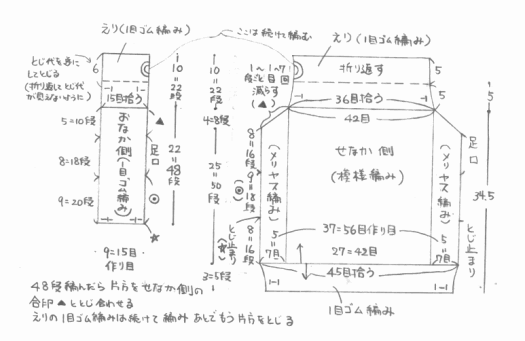 えり(1目ゴム編み)
ここは続けて編む
えり(1目ゴム編み)
とじ代を表に
してとじる
(折り返してとじ代
が見えないように)
6
15目拾う
5=10段
8=18段
9=20段
おなか側
(1目ゴム編み)
足口
▲
◎
★
9=15目
作り目
10=22段
22=48段
10=22段
4=8段
25=50段
3=5段
1〜1〜7
段ごと目回
減らす
(▲)
8=16段
9=18段
(◎)
8=16段
(★)
とじ止まり
折り返す
5
5
36目拾う
42目
せなか側
(模様編み)
(メリヤス編み)
(メリヤス編み)
足口
とじ止まり
5
34.5
37=56目作り目
27=42目
5=7目
5=7目
45目拾う
1目ゴム編み
48段編んだら片方をせなか側の
合印▲ととじ合わせる
えりの1目ゴム編みは続けて編みあとでもう片方をとじる